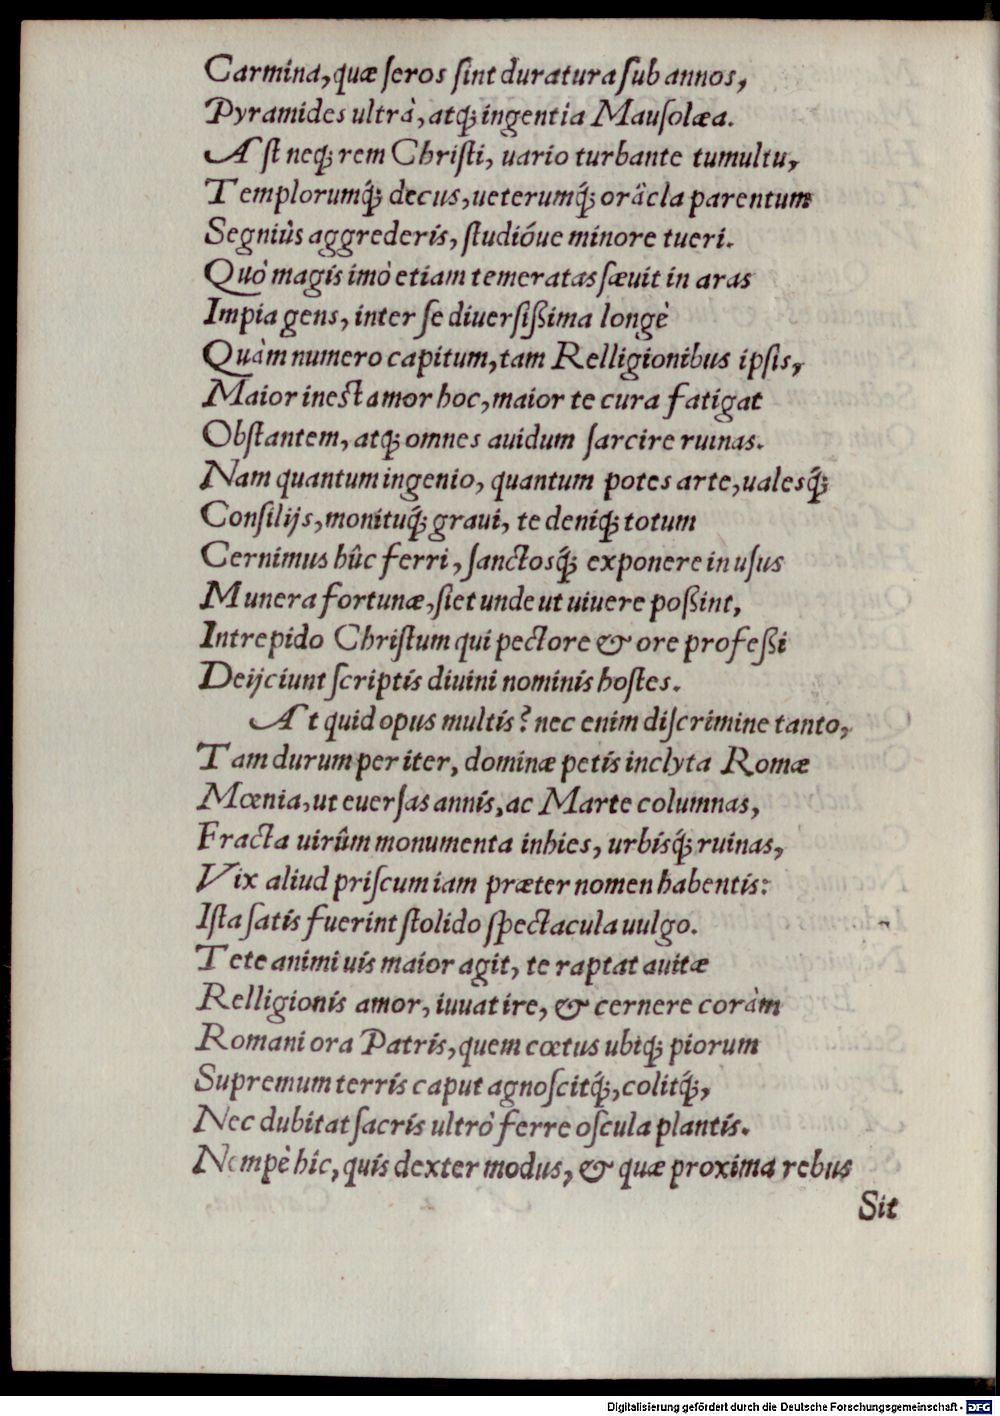 Carmina, quæ ſeros ſint duratura ſub annos,
Pyramides ultrà, atq; ingentia Mauſolæa.
Aſt neq; rem Chriſti, uario turbante tumultu,
Templorumq́; decus, ueterumq́; orâcla parentum
Segniùs aggrederis, ſtudióue minore tueri.
Quò magis imò etiam temeratas ſæuit in aras
Impia gens, inter ſe diuerſißima longè
Quàm numero capitum, tam Relligionibus ipſis,
Maior ineſt amor hoc, maior te cura fatigat
Obſtantem, atq; omnes auidum ſarcire ruinas.
Nam quantum ingenio, quantum potes arte, ualesq́;
Conſilijs, monituq́; graui, te deniq; totum
Cernimus hûc ferri, ſanctosq́; exponere in uſus
Munera fortunæ, ſiet unde ut uiuere poßint,
Intrepido Chriſtum qui pectore & ore profeßi
Deijciunt ſcriptis diuini nominis hoſtes.
At quid opus multis? nec enim diſcrimine tanto,
Tam durum per iter, dominæ petis inclyta Romæ
Mœnia, ut euerſas annis, ac Marte columnas,
Fracta uirûm monumenta inhies, urbisq́; ruinas,
Vix aliud priſcum iam præter nomen habentis:
Iſta ſatis fuerint ſtolido ſpectacula uulgo.
Te te animi uis maior agit, te raptat auitæ
Relligionis amor, iuuat ire, & cernere coràm
Romani ora Patris, quem cœtus ubiq; piorum
Supremum terris caput agnoſcitq́;, colitq́;,
Nec dubitat ſacris ultrò ferre oſcula plantis.
Nempè hic, quis dexter modus, & quæ proxima rebus
Sit
Digitalisierung gefördert durch die Deutsche Forschungsgemeinschaft - DFG